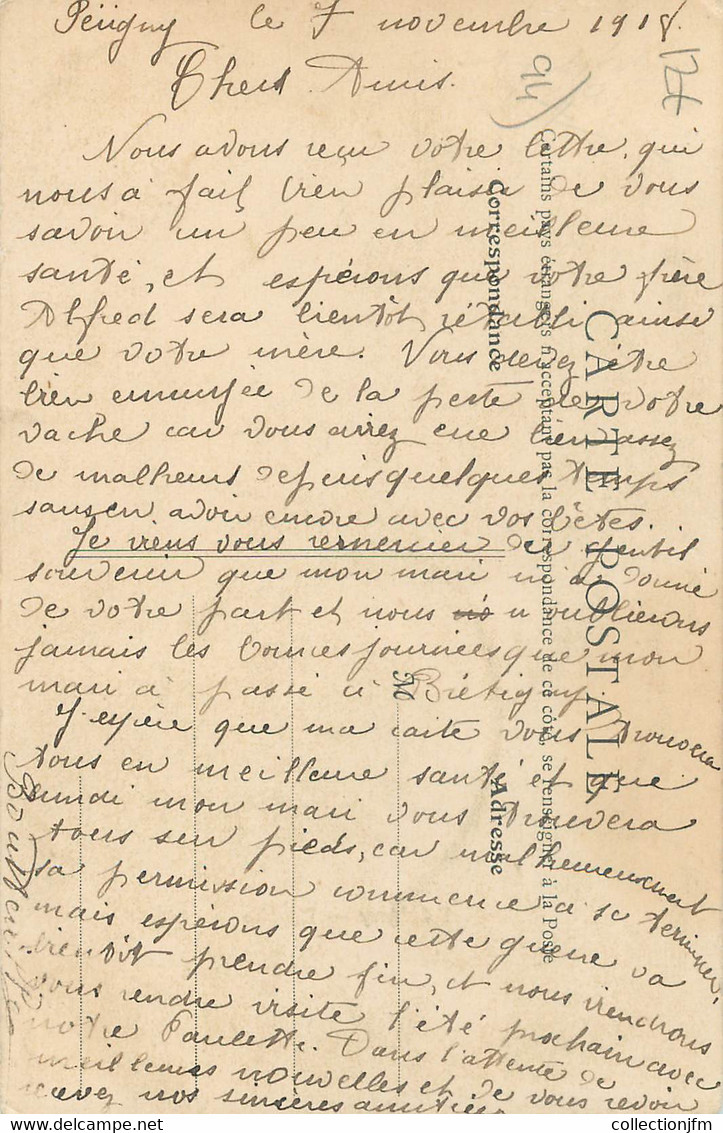 Périgny le 7 novembre 1918.
94)
12t
Chers Amis.
Nous avons reçu votre lettre, qui
nous à fait bien plaisir de vous
savoir un peu en meilleure
santé, et espérons que votre frère
Alfred sera bientôt rétabli ainsi
que votre mère. Vous devez être
bien ennuyée de la perte de votre
vache car vous aviez eue bien assez
de malheurs depuis quelques temps
sans en avoir encore avec vos bêtes.
Je viens vous remercier du gentil
souvenir que mon mari m'a donné
de votre part et nous n'oublierons
jamais les bonnes journées que mon
mari à passé à Brétigny.
J'espère que ma carte vous trouvera
tous en meilleure santé et que
lundi mon mari vous trouvera
tous sur pieds, car malheureusement
sa permission commence à se terminer,
mais espérons que cette guerre va
bientôt prendre fin, et nous viendrons
vous rendre visite l'été prochain avec
notre Paulette. Dans l'attente de
meilleures nouvelles et de vous revoir
recevez nos sincères amitiés
CARTE POSTALE
Certains pays étrangers n'acceptant pas la correspondance de ce côté, se renseigner à la Poste
Correspondance
Adresse
M
collectionjfm